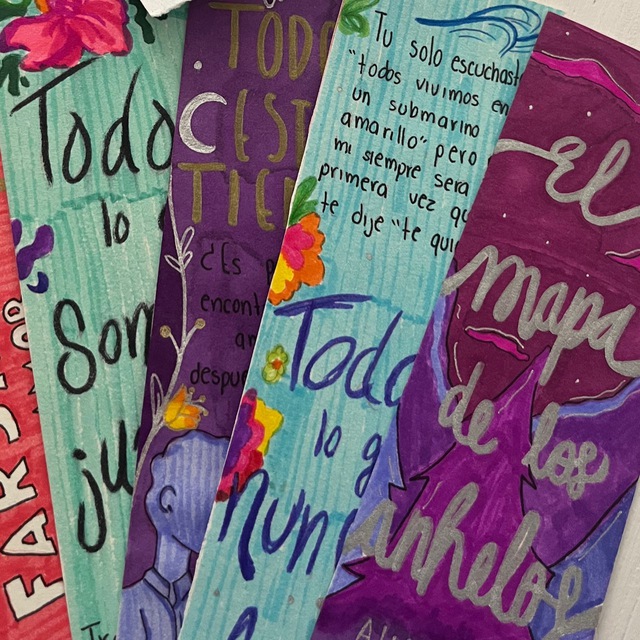 Todo
lo
Som
TODO
CEST
TIE
¿Es
encont
despue
Tu solo escuchast
"todos vivimos en
un submarino
amarillo" pero
mi siempre sera
primera vez qu
te dije "te qui
Todo
lo g
nun
El
mapa
de los
anhelos